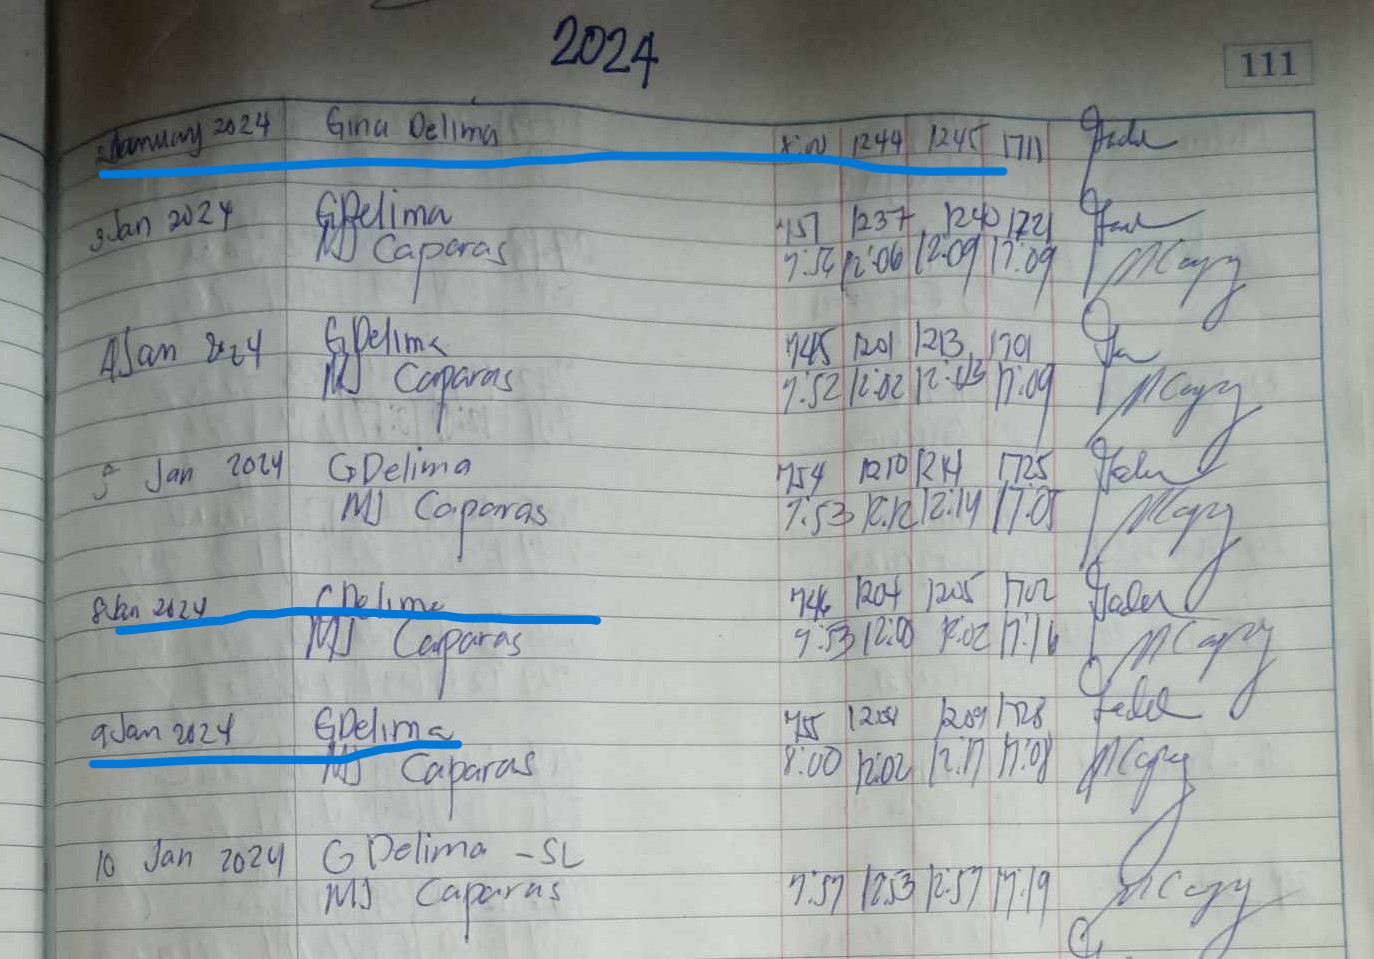 2024
111
2 January 2024 Gina Delima 8:00 1244 1245 1711
3 Jan 2024 GDelima 757 1237 1240 1721
MJ Caparas 7:52 12:06 12:09 17:09
4 Jan 2024 GDelima 745 1201 1213 1701
MJ Caparas 7:52 12:02 17:09
5 Jan 2024 GDelima 754 1210 1214 1725
MJ Caparas 7:53 12:12 12:14 17:05
8 Jan 2024 GDelima 746 1204 1205 1702
MJ Caparas 7:53 12:00 12:02 17:16
9 Jan 2024 GDelima 755 1204 1209 1728
MJ Caparas 8:00 12:02 12:17 17:08
10 Jan 2024 G Delima - SL
MJ Caparas 7:57 12:53 12:57 17:19